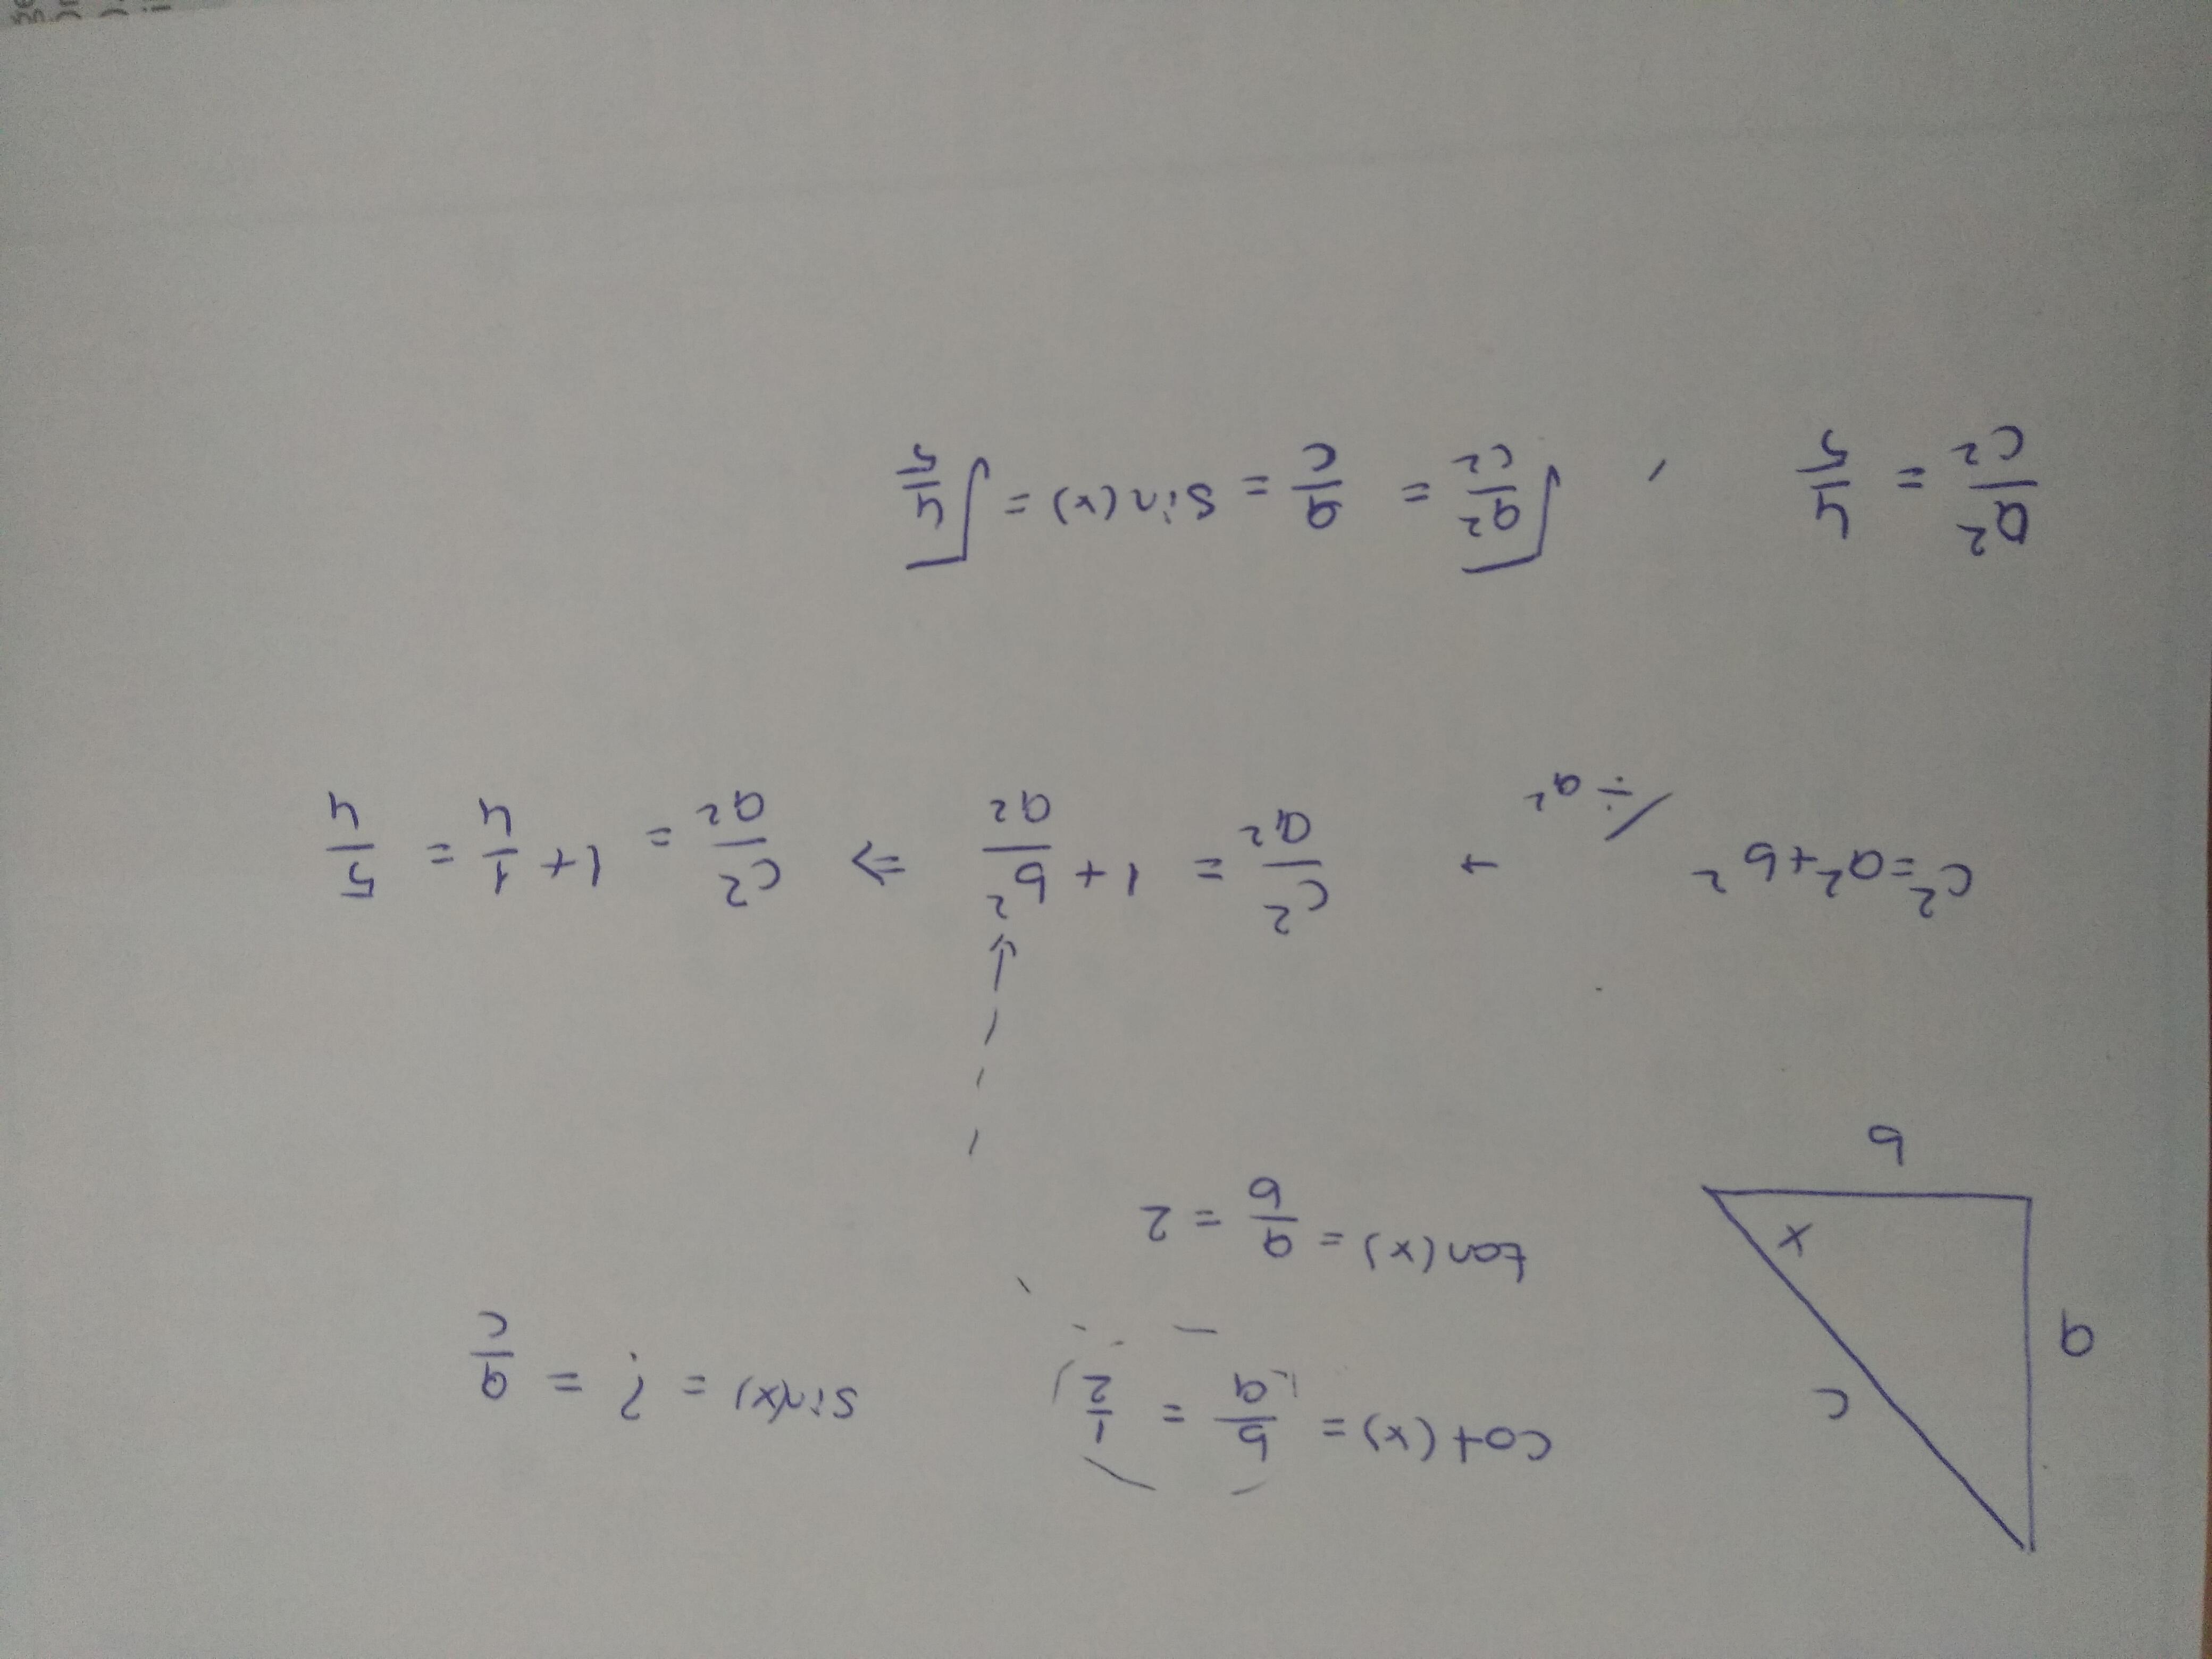 c
a
x
b
cot(x) = b/a = 1/2
sin(x) = ? = a/c
tan(x) = a/b = 2
c² = a² + b² / ÷ a² → c²/a² = 1 + b²/a² ⇒ c²/a² = 1 + 1/4 = 5/4
a²/c² = 4/5 , √(a²/c²) = a/c = sin(x) = √(4/5)